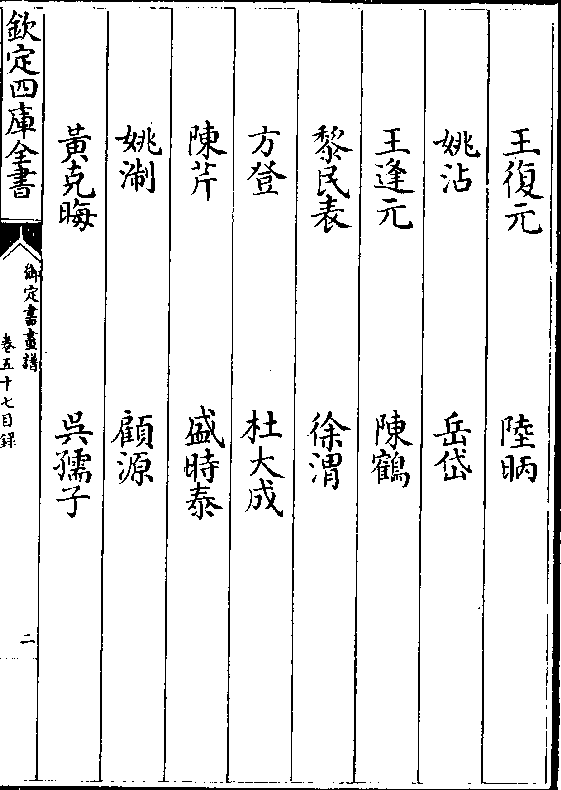 王復元　陸昞
姚沾　岳岱
王逢元　陳鶴
黎民表　徐渭
方登　杜大成
陳芹　盛時泰
姚淛　顧源
黃克晦　吳孺子
欽定四庫全書
御定書畫譜
卷五十七目録
二